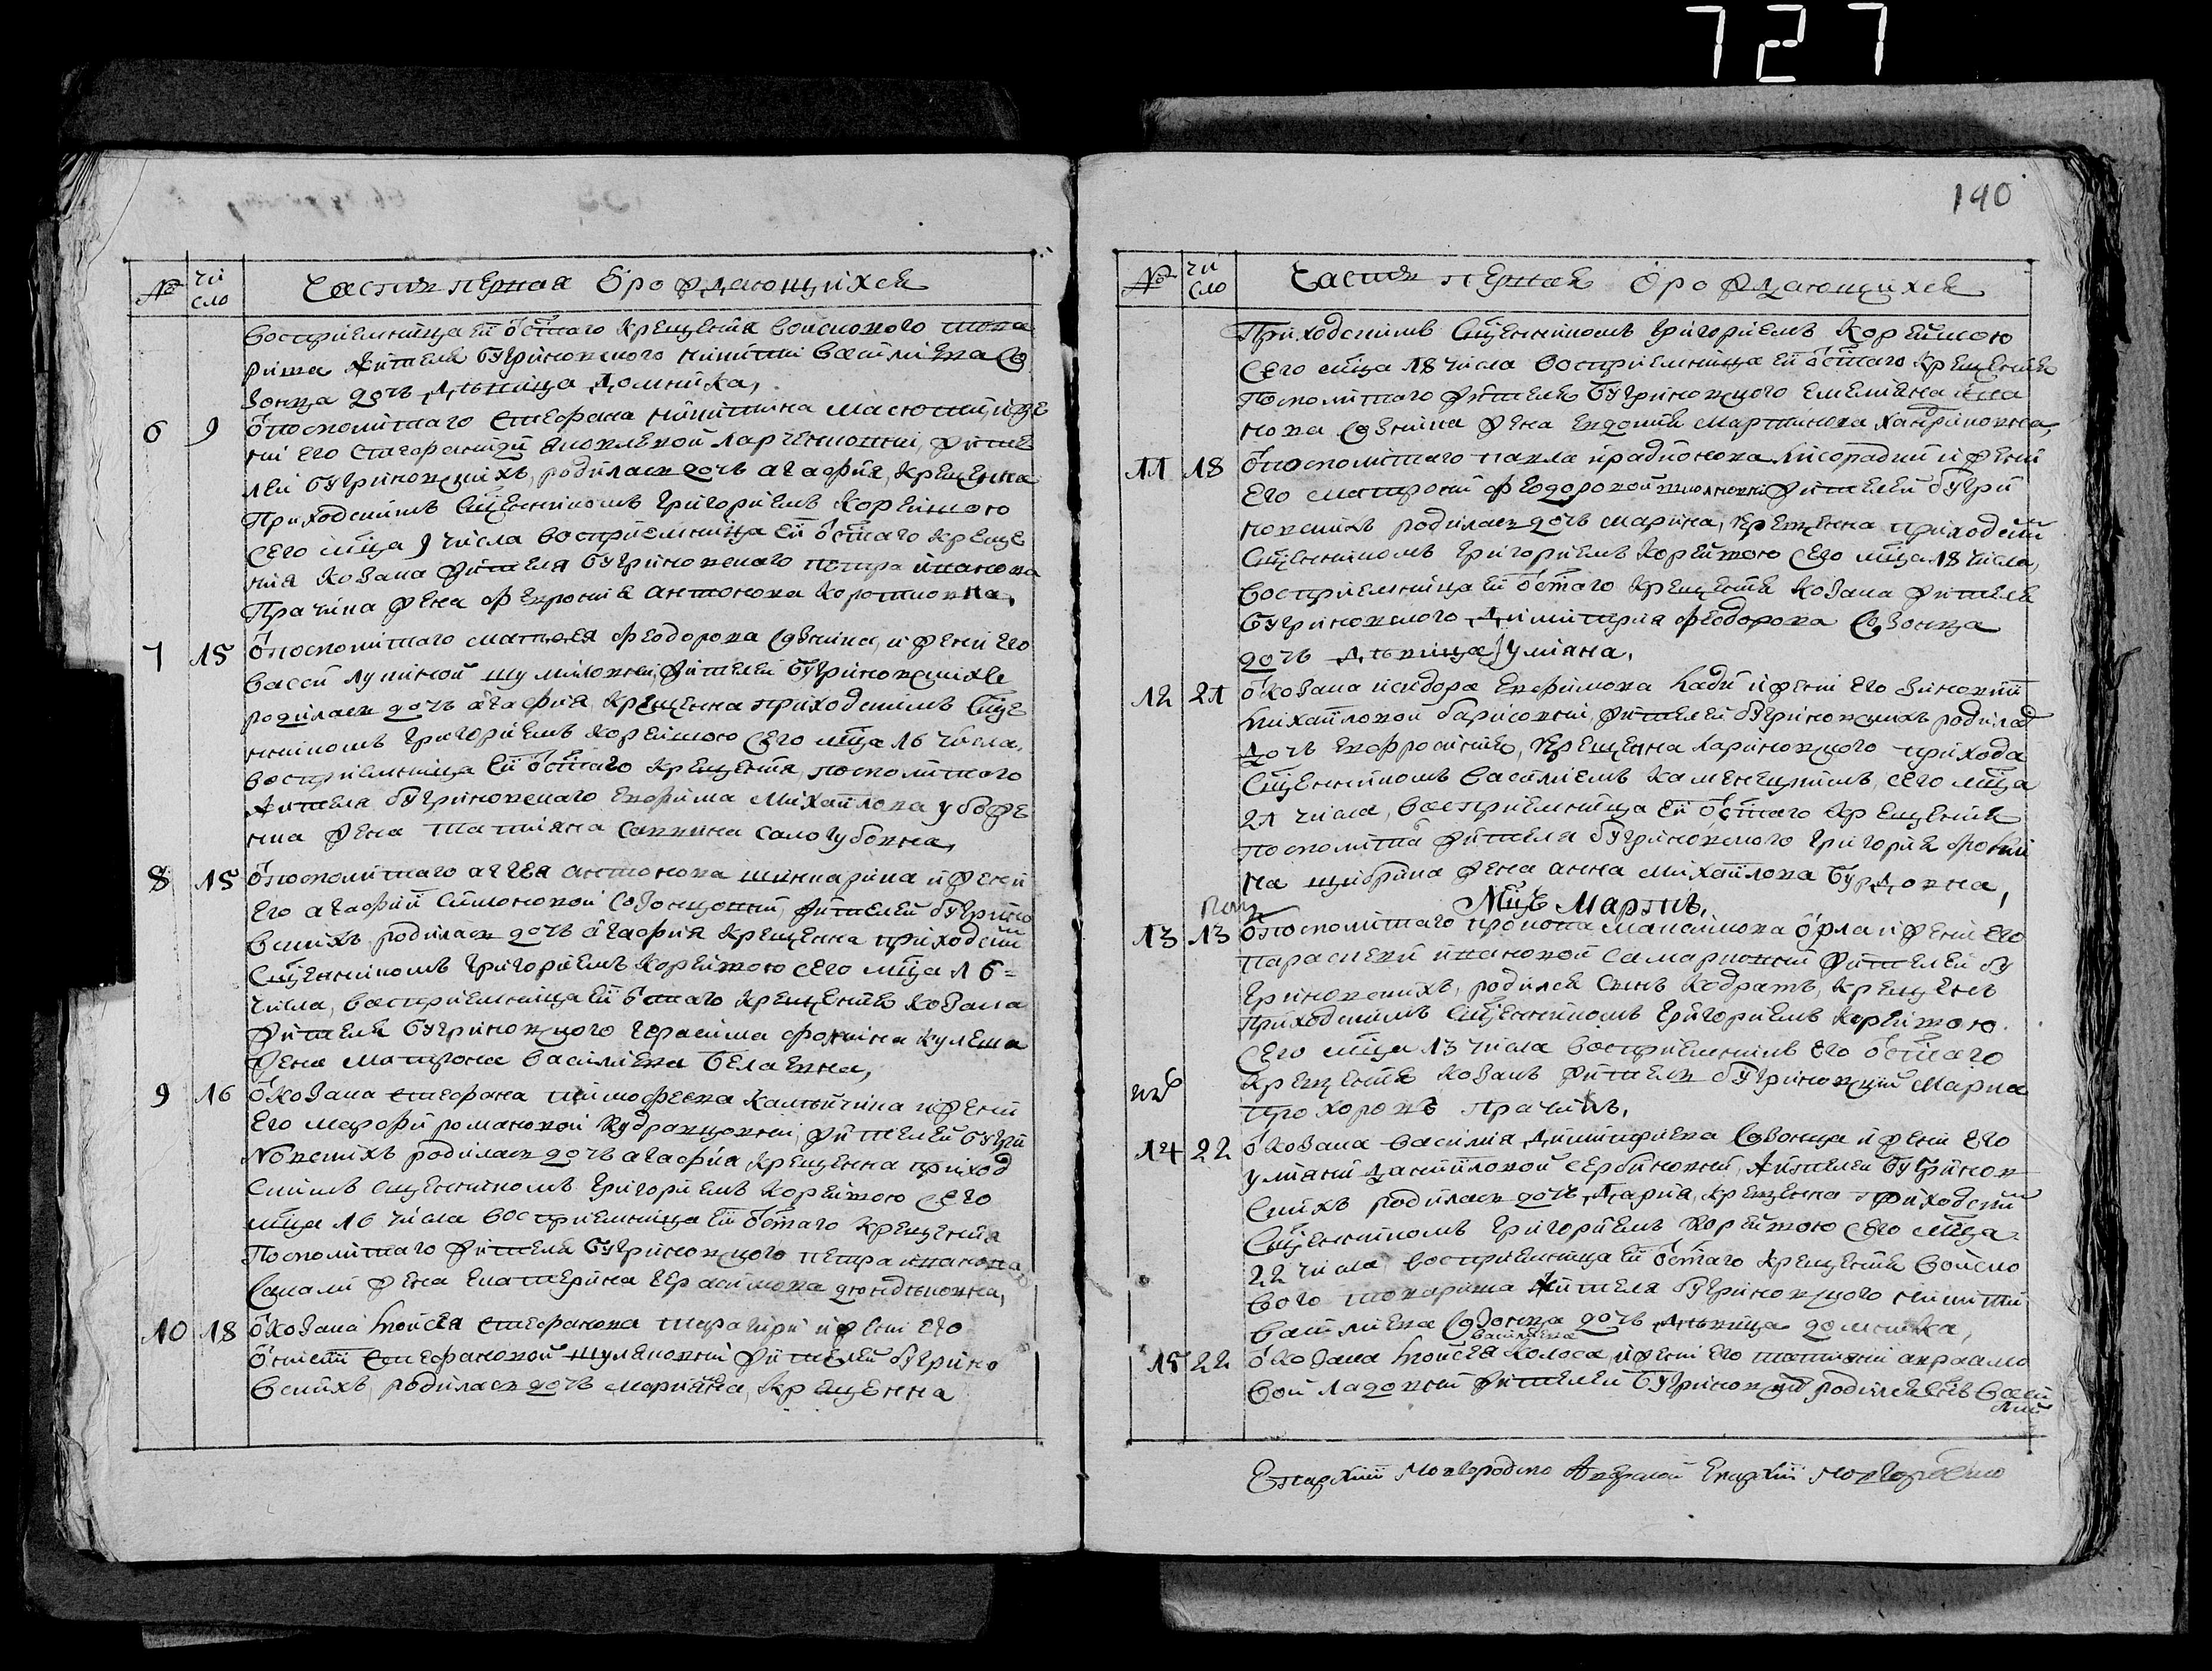 727
№ Чи сло Часть первая ѡ рождающихся
восприемница ей ѿ стаго крещения войскового това
риша жителя бугриновского никити василиева со
зонца дочь девица домника,
6 9 ѿ посполитаго стефана никитина и же
ни его стефаниди яковлевой ларченковни, жите
лей бугриновских, родилася дочь агафия, крещенна
приходским сщенником григорием корейшою
сего мца 9 числа восприемница ей ѿ стаго креще
ния козака жителя бугриновского петра иванова
прачика жена феврония антонова коротковна,
7 15 ѿ посполитаго матвея феодорова и жени его
васси лукиной шумиловни, жителей бугриновских
родилася дочь агафия, крещенна приходским сще
нником григорием корейшою сего мца 16 числа,
восприемница ей ѿ стаго крещения, посполитого
жителя бугриновского евфима михайлова убоже
нка жена татияна саввина самогубовна,
8 15 ѿ посполитаго аггея антонова шинкарика и жени
его агафии симоновой созонцовни, жителей бугрино
вских родилася дочь агафия крещенна приходски
сщенником григорием корейшою сего мца 16
числа, восприемница ей ѿ стаго крещения козака
жителя бугриновского герасима фомина кулеша
жена матрона василиева белаевна,
9 16 ѿ козака стефана тимофеева и жени
его марфи романовой кудравцовни, жителей бугри
новских родилася дочь агафия крещенна приход
ским сщенником григорием корейшою сего
мца 16 числа восприемница ей ѿ стаго крещения
посполитаго жителя бугриновского петра иванова
жена екатерина герасимова
10 18 ѿ козака моисея стефанова и жени его
стефановой шуляковни жителей бугрино
вских, родилася дочь марияна, крещенна
140
№ Чи сло Часть первая ѡ рождающихся
приходским сщенником григорием корейшою
сего мца 18 числа восприемница ей ѿ стаго крещения
посполитаго жителя бугриновского емелияна
жена евдокия мартинова
11 18 ѿ посполитаго павла ирадионова и жени
его матрони феодоровой жителей бугри
новских родилася дочь марина, крещенна приходски
сщенником григорием корейшою сего мца 18 числа,
восприемница ей ѿ стаго крещения козака жителя
бугриновского димитрия феодорова созонца
дочь девица улияна,
12 21 ѿ козака исидора евфимова и жени его зиновии
михайловой борисовни, жителей бугриновских родилас
дочь евфросиния, крещенна лариновского прихода
сщенником василием каменецким, сего мца
21 числа, восприемница ей ѿ стаго крещения
посполита жителя бугриновского григория фоми
на жена анна михайлова бурдовна,
Мцъ Мартъ,
13 13 ѿ посполитаго прокопа максимова орла и жени его
параскеви ивановой самарковни жителей бу
гриновских, родился сын кодрат, крещен
приходским сщенником григорием корейшою
сего мца 13 числа восприемник его ѿ стаго
крещения козак житель бугриновский марко
прохоров прачик,
14 22 ѿ козака василия димитриева созонца и жени его
улияни даниловой сербиновни, жителей бугринов
ских родилася дочь дария, крещенна приходски
сщенником григорием корейшою сего мца
22 числа, восприемница ей ѿ стаго крещения войско
вого товариша жителя бугриновского никити
василиева созонца дочь девица домника,
василиева
15 22 ѿ козака моисея колоса, и жени его татияни авраамо
вой ладовни жителей бугриновских родился син васи
лий